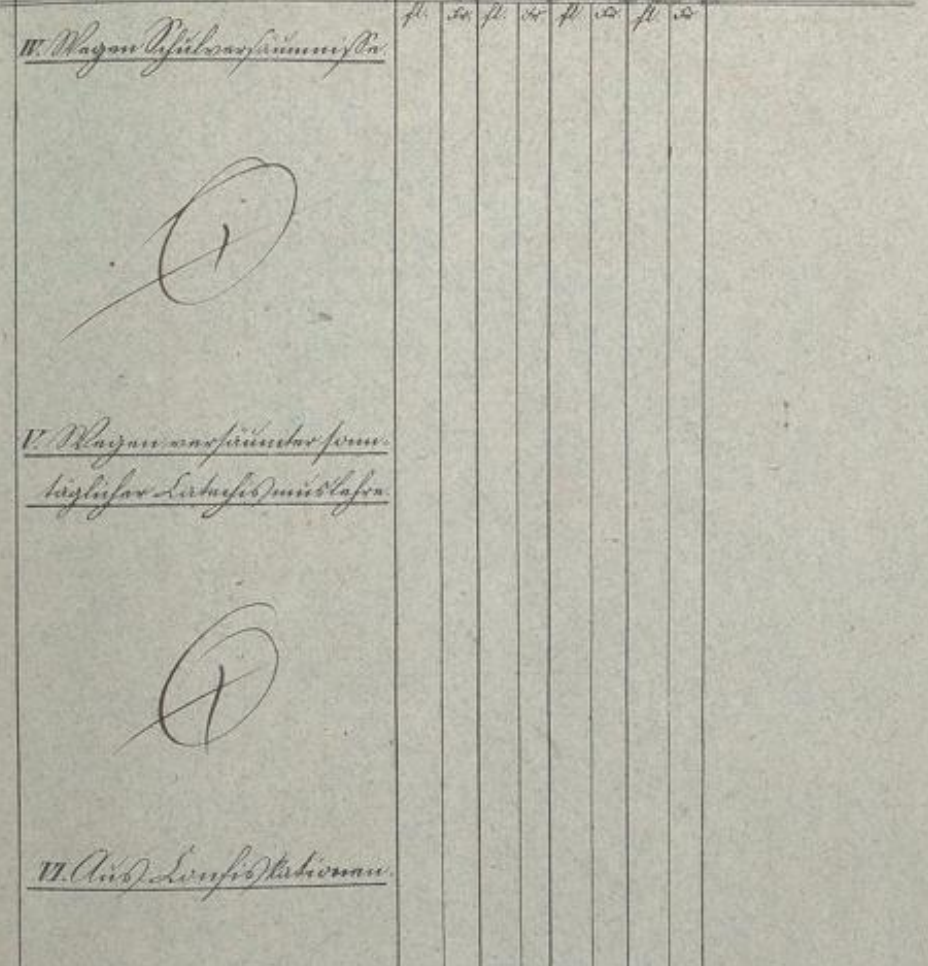 fl. Xr. fl. Xr fl. Xr fl. Xr
IV. Wegen Schulversäumnisse.
V. Wegen versäumter sonn-
täglicher Catechismuslehre.
VI. Aus Confiskationen.